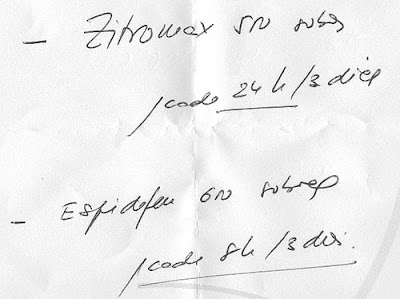 - Zitromax 500 sobres
/cada 24 h /3 dias
- Espidifen 600 sobres
/cada 8h /3 dias.